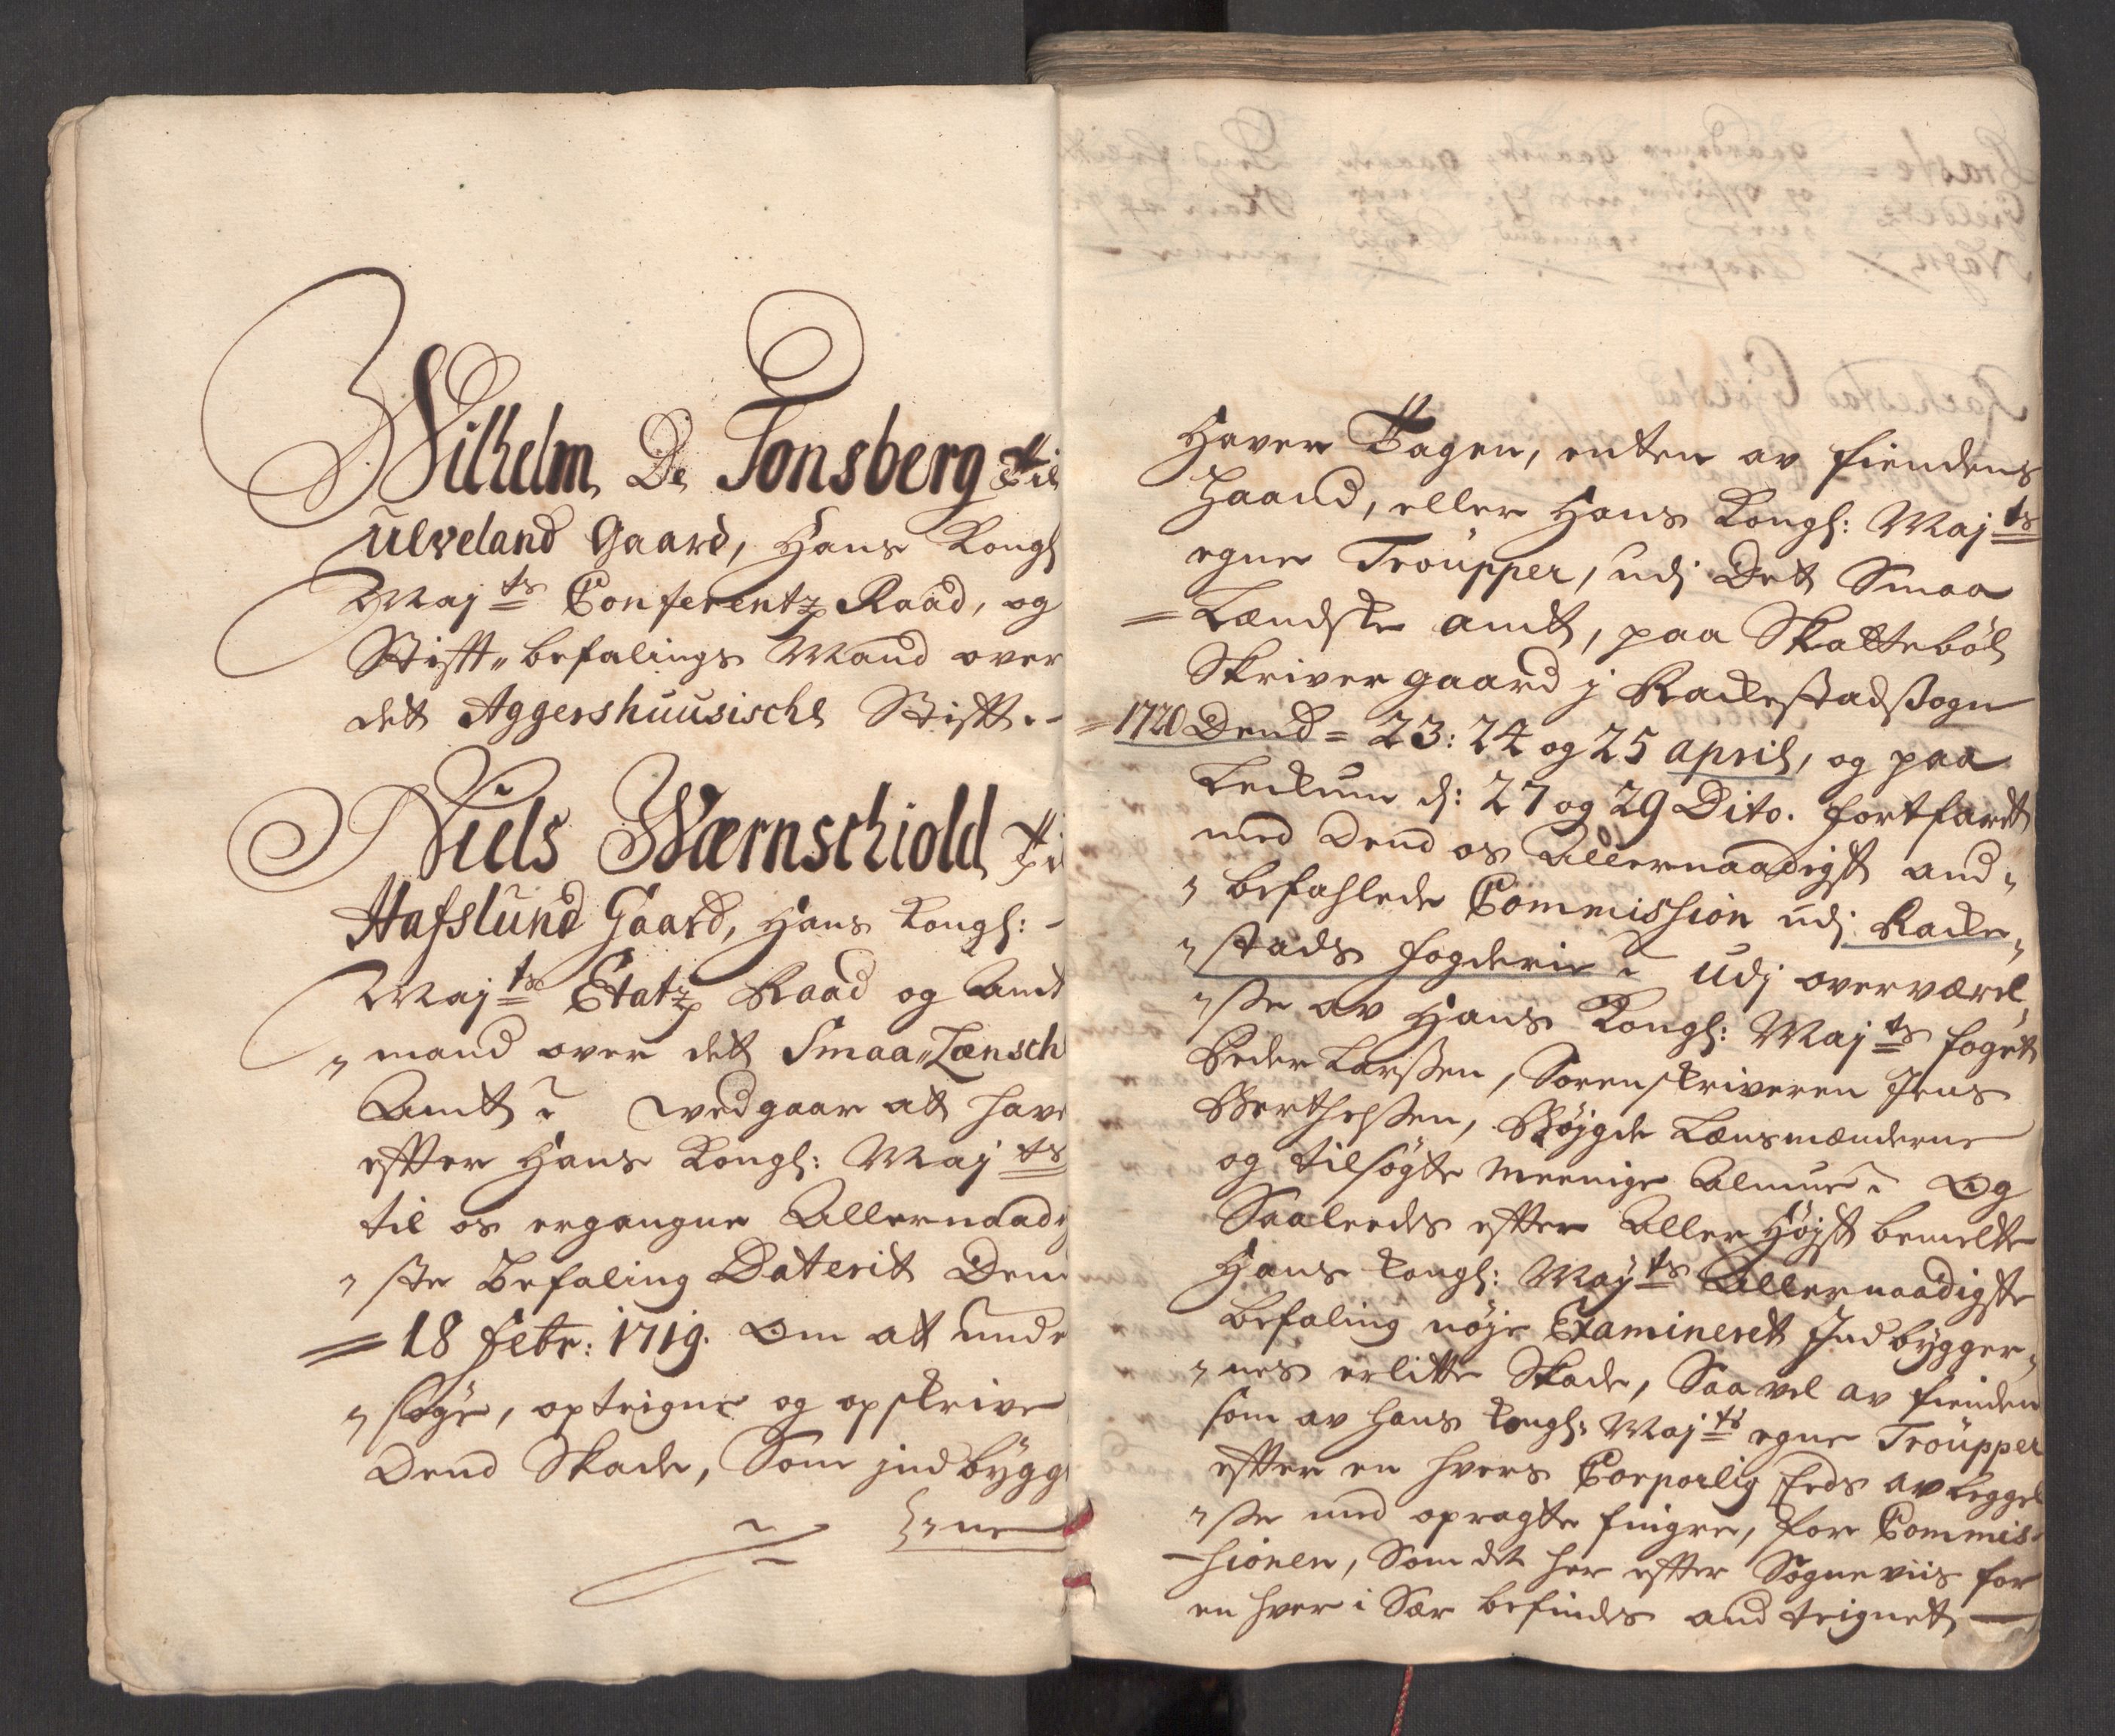 Wilhelm De Tonsberg til
Ulveland Gaard, Hans Kongl
Maj:ts Conferentz Raad, og
Stift„befalings Mand over
det Aggershuusische Stift.-
Niels Wærnschiold til
Hafslund Gaard, Hans Kongl:-
Maj:ts Etatz Raad og Amt
„mand over det Smaa„Lænsch
Amt? vedgaar at have
effter Hans Kongl: Maj:ts
til os ergangne Allernaadig
„ste Befaling Daterit Den
=18 Febr: 1719. Om at unde
„søge, opteigne og opskrive
Dend Skade, Som jndbygg
„ne
Haver Tagen, enten av fiendens
Haand, eller Hans Kongl: Maj:ts
egne Troupper, udj Det Smaa
=Lændske amt, paa Skattebøl
Skriver gaard j Rackestad Sogn
=1720 Dend= 23: 24 og 25 april, og paa
Leckum d: 27 og 29 Dito. fortfaret
med Dend os Allernaadigst and„
„befahlede Commission udj Racke„
„stads fogderie? udj overværel„
„sse av Hans Kongl: Maj:ts foget
Peder Larssen, Sorenskriveren Jens
Berthelssen, Bøjgde Lænsmænderne
og tilsøgte meenige Almue? Og
Saaleedes effter Aller Højst bemelte
Hans Kongl: Maj:ts Allernaadigste
Befaling nøje Examineret Jndbygger„
„nes erlitte Skade, Saa vel av fienden
som av Hans Kongl: Maj:ts egne Troupper
effter en hvers Corporlig Eeds avleggel
„sse med opragte fingre, for Commis-
-sionen, Som det her effter Sogneviis for
en hver i Sær befindes and teignet —